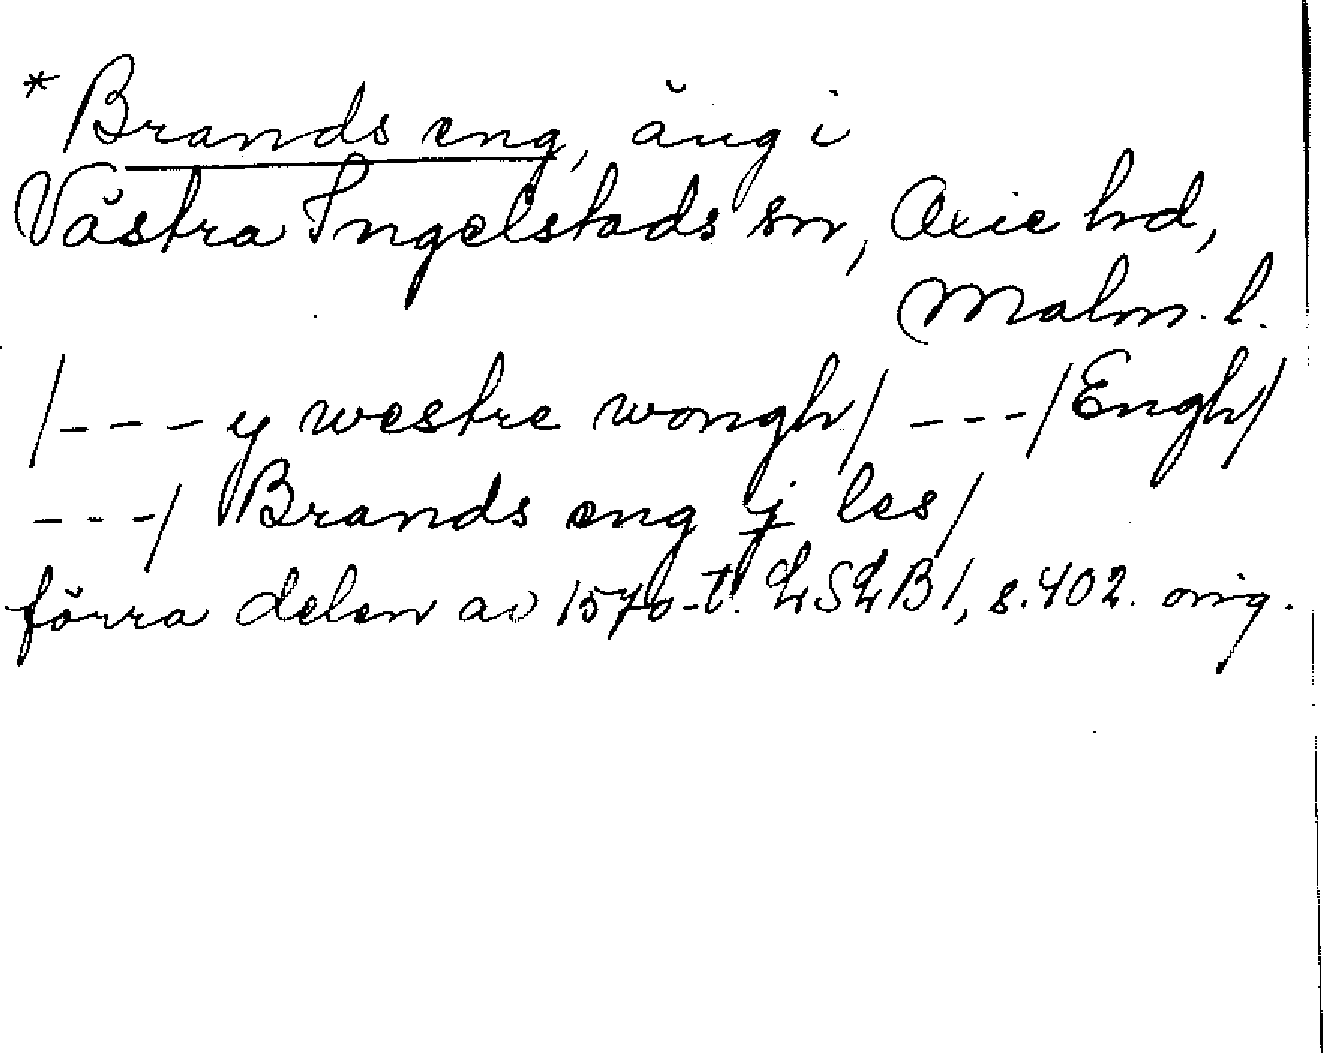 * Brands eng, äng i
Västra Ingelstads sn, Oxie hd,
Malm. l.
/--- y westre wongh/ ---/Engh/
---/ Brands eng j les/
förra delen av 1570-t. LSLB1, s. 402. orig.